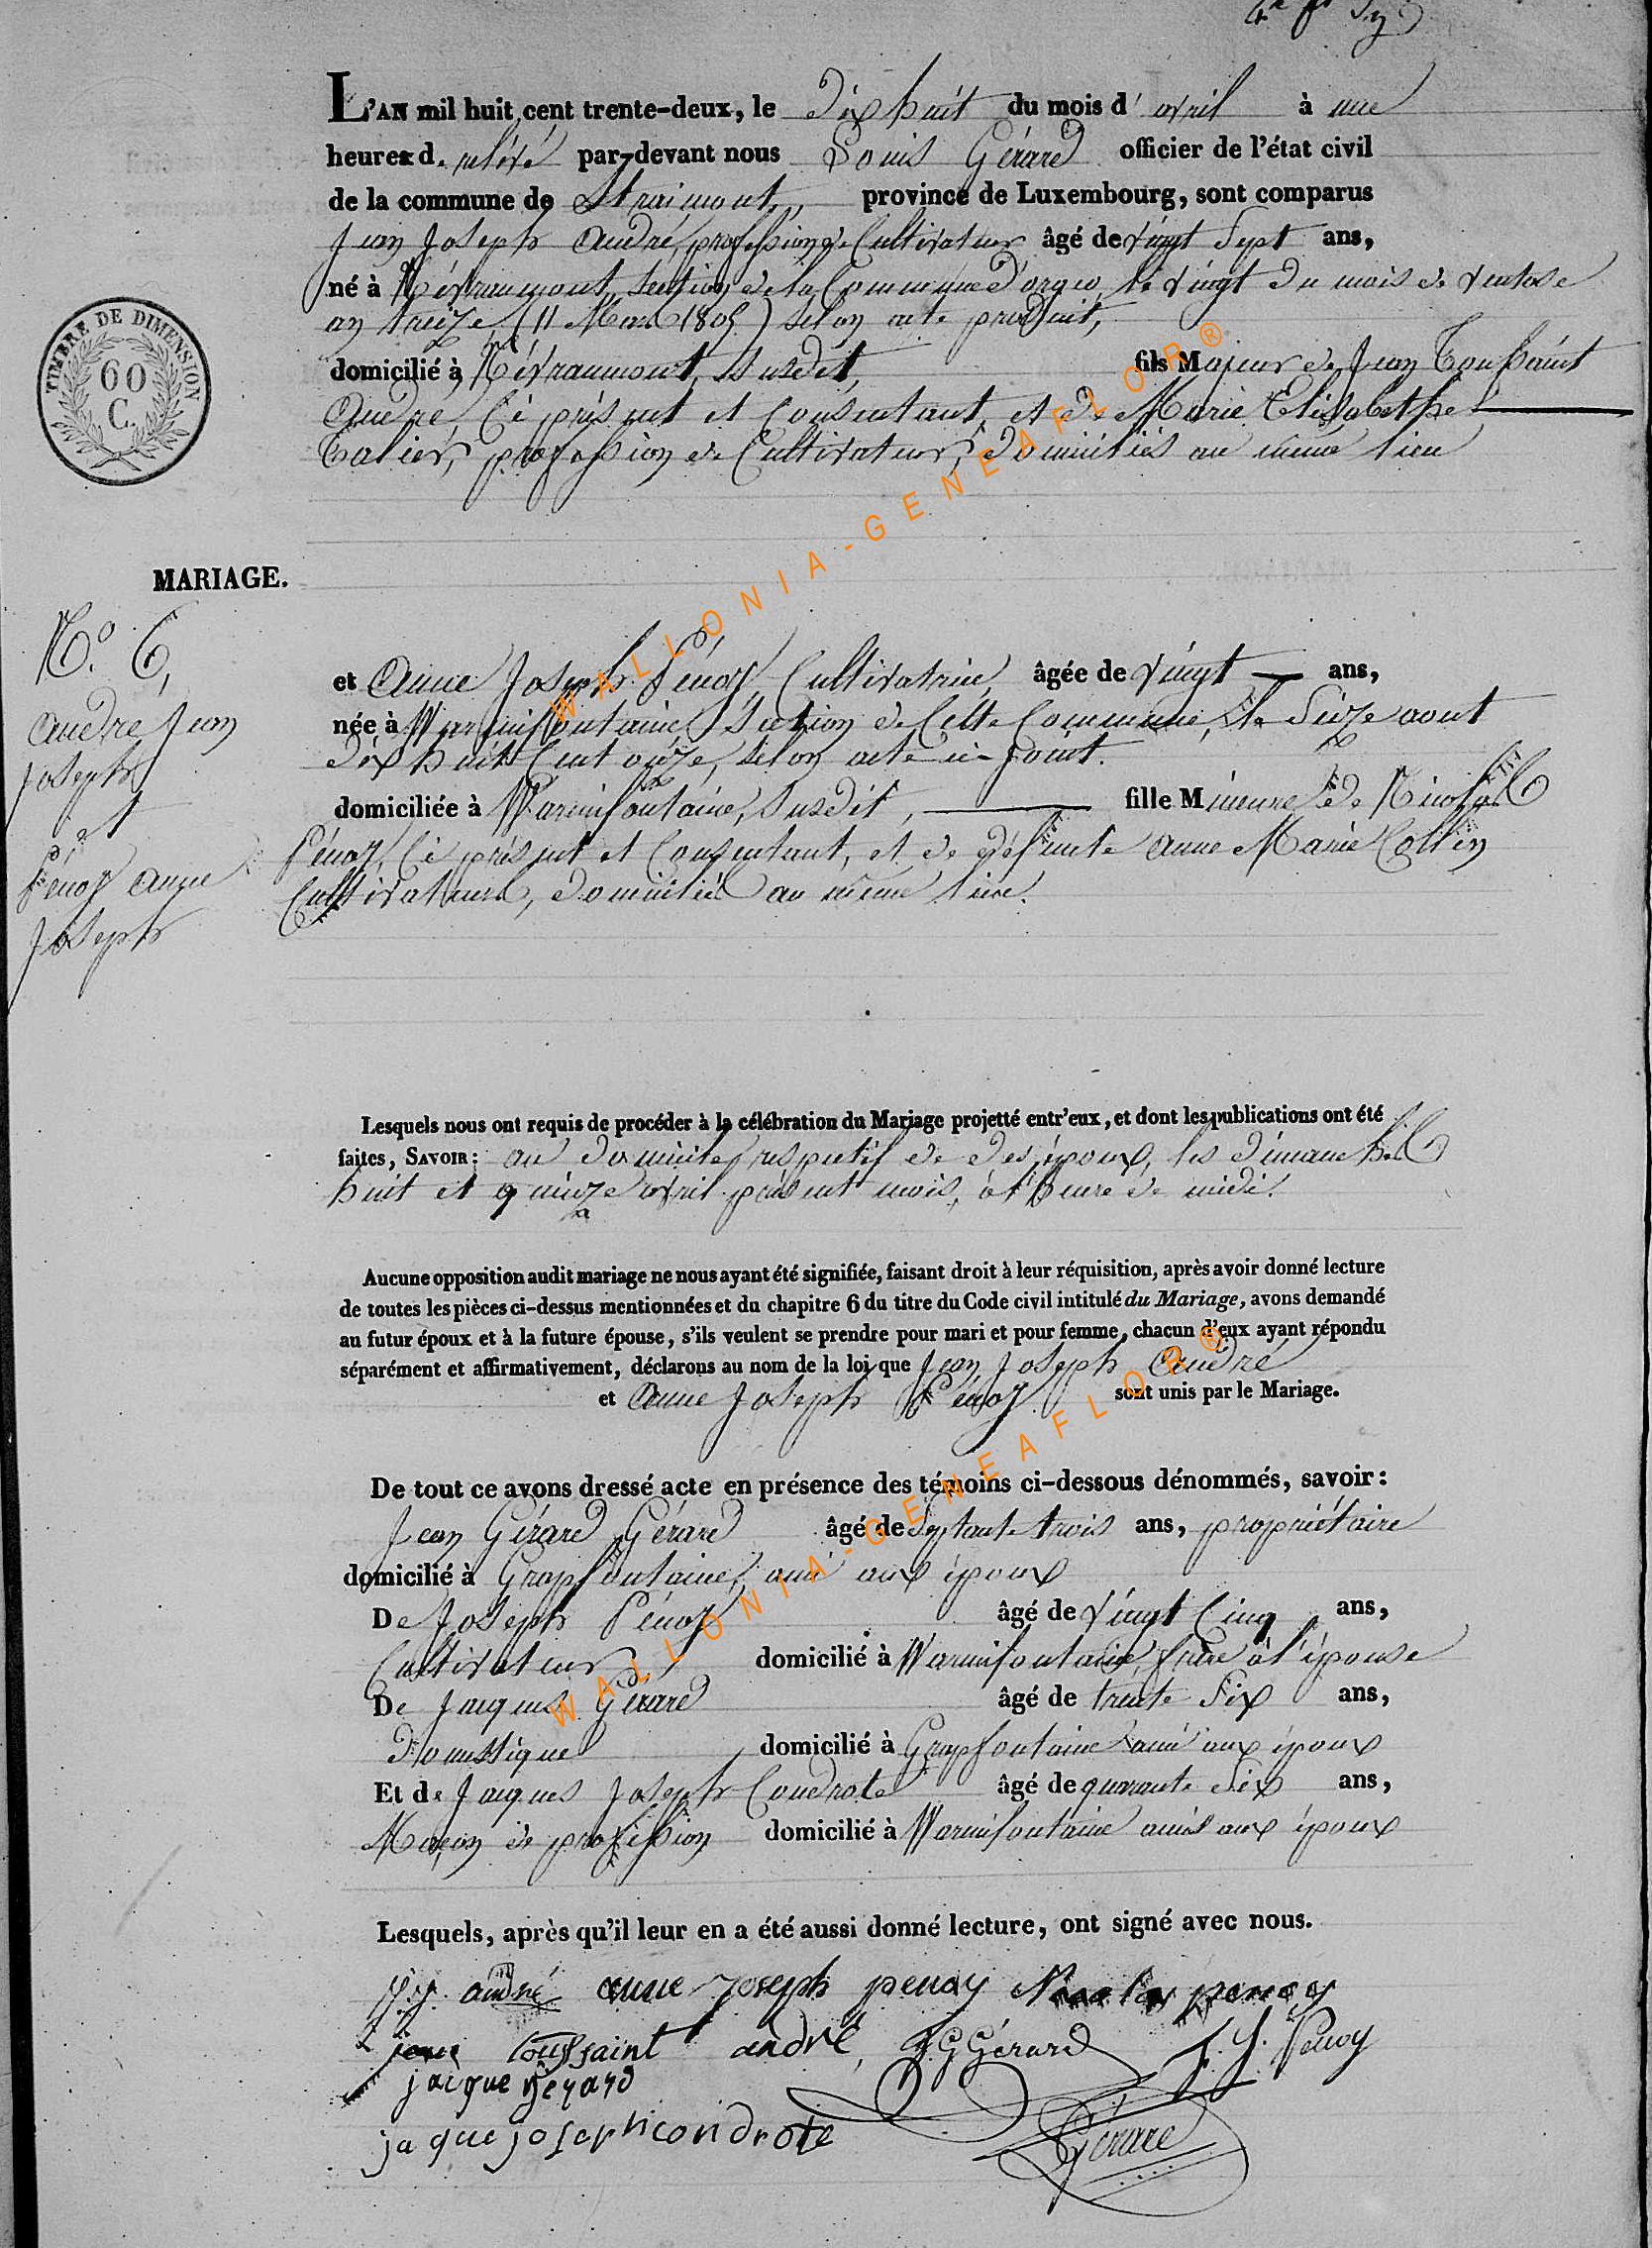 L'AN mil huit cent trente-deux, le dix huit du mois d'avril à une
heures d. relevé par-devant nous Louis Gérard officier de l'état civil
de la commune de Straimont, province de Luxembourg, sont comparus
Jean Joseph André, profession de Cultivateur âgé de vingt Sept ans,
né à Névraumont, section de la Commune d'orgeo, le vingt du mois de ventose
an treize (11 Mars 1805) selon acte produit,
TIMBRE DE DIMENSION
60
C.
domicilié à Névraumont, susdit, fils Majeur de Jean Toussaint
André, Ci présent et Consentant, et de Marie Elisabethe
profession de Cultivateurs, domiciliés au même lieu
MARIAGE.
N.º 6,
andré Jean
Joseph
et
Pénoy anne
Joseph
et Anne Joseph Pénoy, Cultivatrice, âgée de vingt ans,
née à Warmifontaine, Section de Cette Commune, le Seize aout
dix huit Cent onze, selon acte ci-joint.
domiciliée à Warmifontaine, susdit, fille Mineure de Nicolas
Pénoy, Ci présent et Consentant, et de défunte Anne Marie Collin
Cultivateurs, domiciliés au même lieu.
Lesquels nous ont requis de procéder à la célébration du Mariage projetté entr'eux, et dont les publications ont été
faites, SAVOIR: au domicile respectif de des époux, les dimanches
huit et quinze avril présent mois, à l'heure de midi.
Aucune opposition audit mariage ne nous ayant été signifiée, faisant droit à leur réquisition, après avoir donné lecture
de toutes les pièces ci-dessus mentionnées et du chapitre 6 du titre du Code civil intitulé du Mariage, avons demandé
au futur époux et à la future épouse, s'ils veulent se prendre pour mari et pour femme, chacun d'eux ayant répondu
séparément et affirmativement, déclarons au nom de la loi que Jean Joseph André
et Anne Joseph Pénoy sont unis par le Mariage.
De tout ce avons dressé acte en présence des témoins ci-dessous dénommés, savoir:
Jean Gérard Gérard âgé de Septante trois ans, propriétaire
domicilié à Grapfontaine, ami aux époux
De Joseph Pénoy âgé de vingt Cinq ans,
Cultivateur, domicilié à Warmifontaine, frère à l'épouse
De Jacques Gérard âgé de trente Six ans,
domestique domicilié à Grapfontaine ami aux époux
Et de Jacques Joseph Condrote âgé de quarante Six ans,
Maçon de profession domicilié à Warmifontaine amis aux époux
Lesquels, après qu'il leur en a été aussi donné lecture, ont signé avec nous.
J.J. andré anne joseph penoy Nicolas penoy
jean toussaint andré J G Gérard J. J. Penoy
jacque gerard
jaque joseph condrote Gérard
WALLONIA-GENEAFLOR®
WALLONIA-GENEAFLOR®